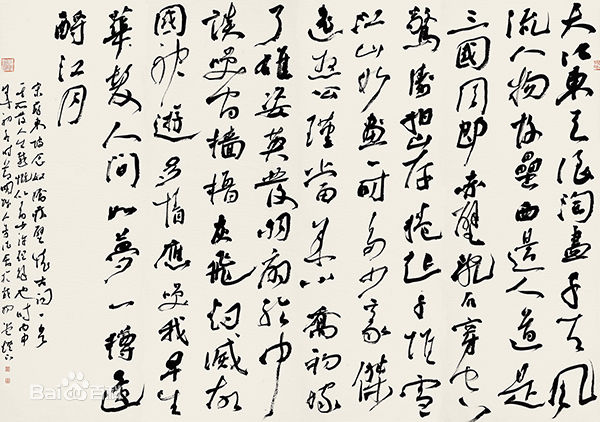 大江東去浪淘盡千古風
流人物故壘西邊人道是
三國周郎赤壁亂石穿空
驚濤拍岸捲起千堆雪
江山如畫一時多少豪傑
遙想公瑾當年小喬初嫁
了雄姿英發羽扇綸巾
談笑間檣櫓灰飛煙滅故
國神遊多情應笑我早生
華髮人間如夢一樽還
酹江月
宋蘇東坡念奴嬌赤壁懷古詞一首
Bai百科